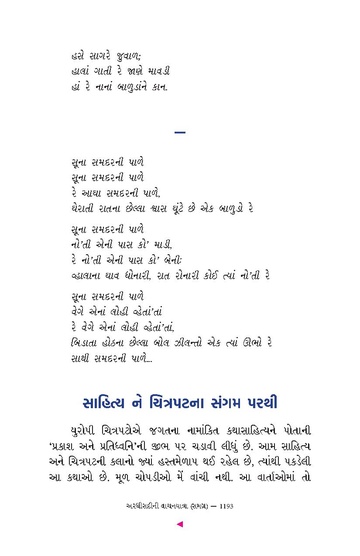 હસે સાગરે જુવાળ;
હાલાં ગાતી રે જાણે માવડી
હાં રે નાનાં બાળુડાંને કાન.
સૂના સમદરની પાળે
સૂના સમદરની પાળે
રે આઘા સમદરની પાળે,
ઘેરાતી રાતના છેલ્લા શ્વાસ ઘૂંટે છે એક બાળુડો રે
સૂના સમદરની પાળે
નો'તી એની પાસ કો' માડી,
રે નો'તી એની પાસ કો' બેનીઃ
વ્હાલાના ઘાવ ધોનારી, રાત રોનારી કોઈ ત્યાં નો'તી રે
સૂના સમદરની પાળે
વેગે એનાં લોહી વ્હેતાં'તાં
રે વેગે એનાં લોહી વ્હેતાં'તાં,
બિડાતા હોઠના છેલ્લા બોલ ઝીલન્તો એક ત્યાં ઊભો રે
સાથી સમદરની પાળે...
સાહિત્ય ને ચિત્રપટના સંગમ પરથી
યુરોપી ચિત્રપટોએ જગતના નામાંકિત કથાસાહિત્યને પોતાની
'પ્રકાશ અને પ્રતિધ્વનિ'ની જીભ પર ચડાવી લીધું છે. આમ સાહિત્ય
અને ચિત્રપટની કલાનો જ્યાં હસ્તમેળાપ થઈ રહેલ છે, ત્યાંથી પકડેલી
આ કથાઓ છે. મૂળ ચોપડીઓ મેં વાંચી નથી. આ વાર્તાઓમાં તો
અરધીસદીની વાચનયાત્રા (સમગ્ર) — 1193